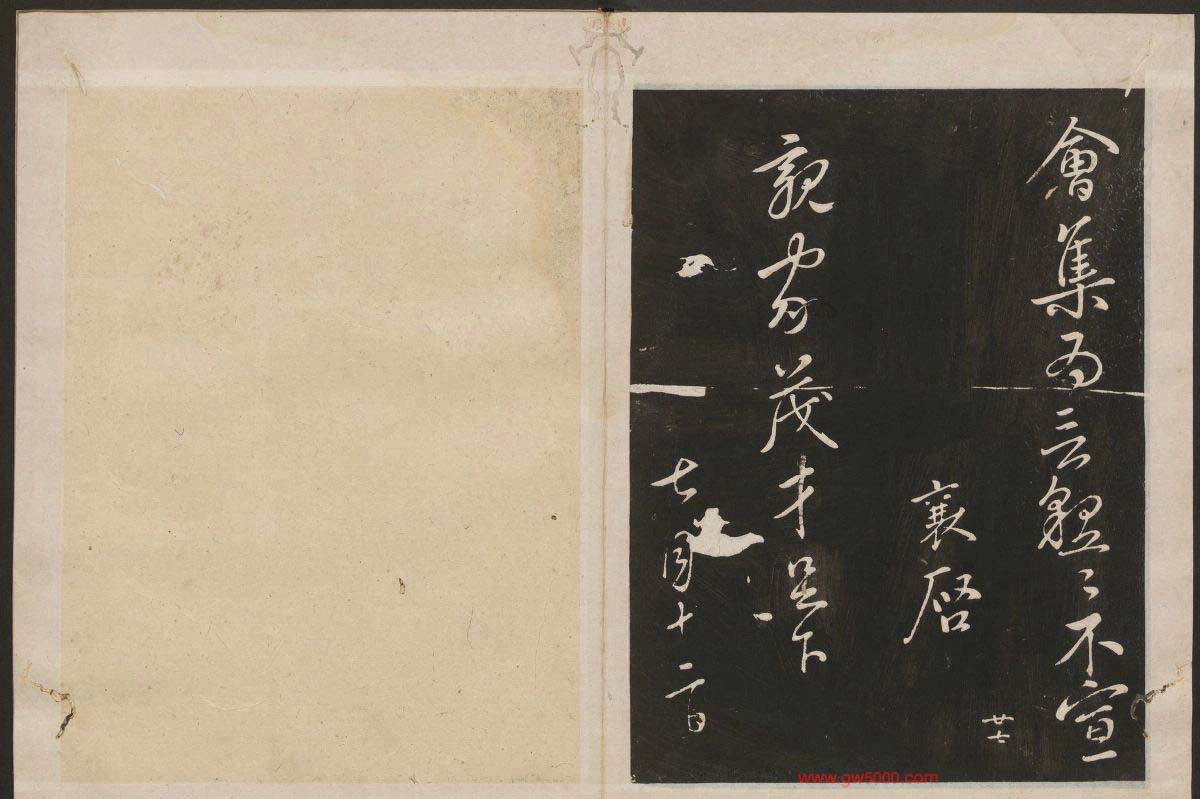 會集為 不宣
襄啓
廿七
親家茂才足下
七月十二日
www.gw5000.com